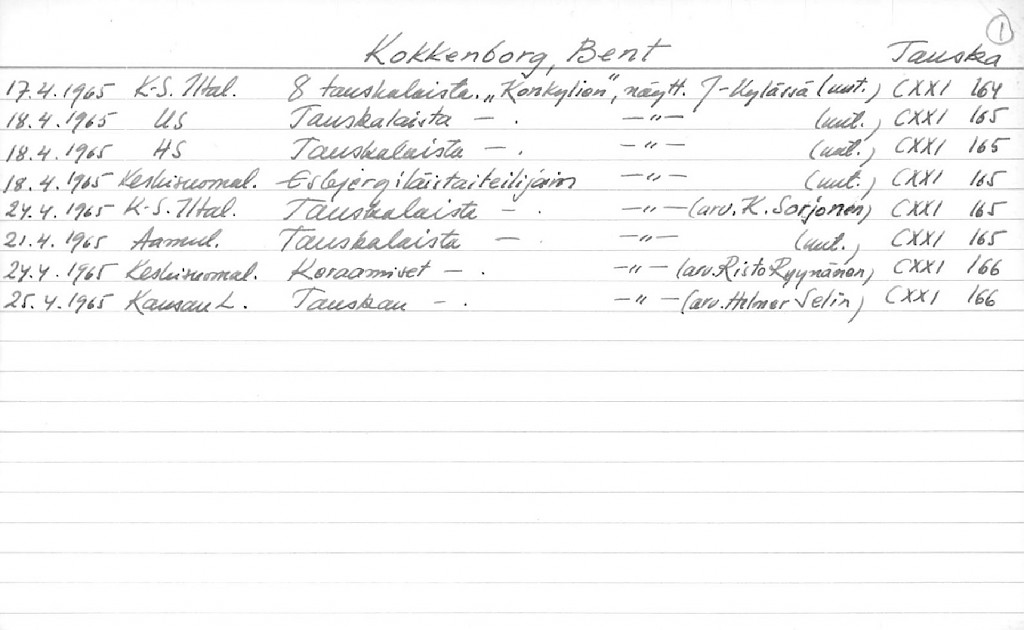 1
Kokkenborg, Bent Tanska
17.4.1965 K-S. Iltal. 8 tanskalaista. „Konkylien", näytt. J-Kylässä (uut.) CXXI 164
18.4.1965 US Tanskalaista — . —"— (uut.) CXXI 165
18.4.1965 HS Tanskalaista — . —"— (uut.) CXXI 165
18.4.1965 Keskisuomal. Esbjergiläistaiteilijain —"— (uut.) CXXI 165
24.4.1965 K-S. Iltal. Tanskalaista — . —"— (arv. K. Sorjonen) CXXI 165
21.4.1965 Aamul. Tanskalaista — . —"— (uut.) CXXI 165
24.4.1965 Keskisuomal. Keraamiset — . —"— (arv. Risto Ryynänen) CXXI 166
25.4.1965 Kansan L. Tanskan — . —"— (arv. Helmer Selin) CXXI 166